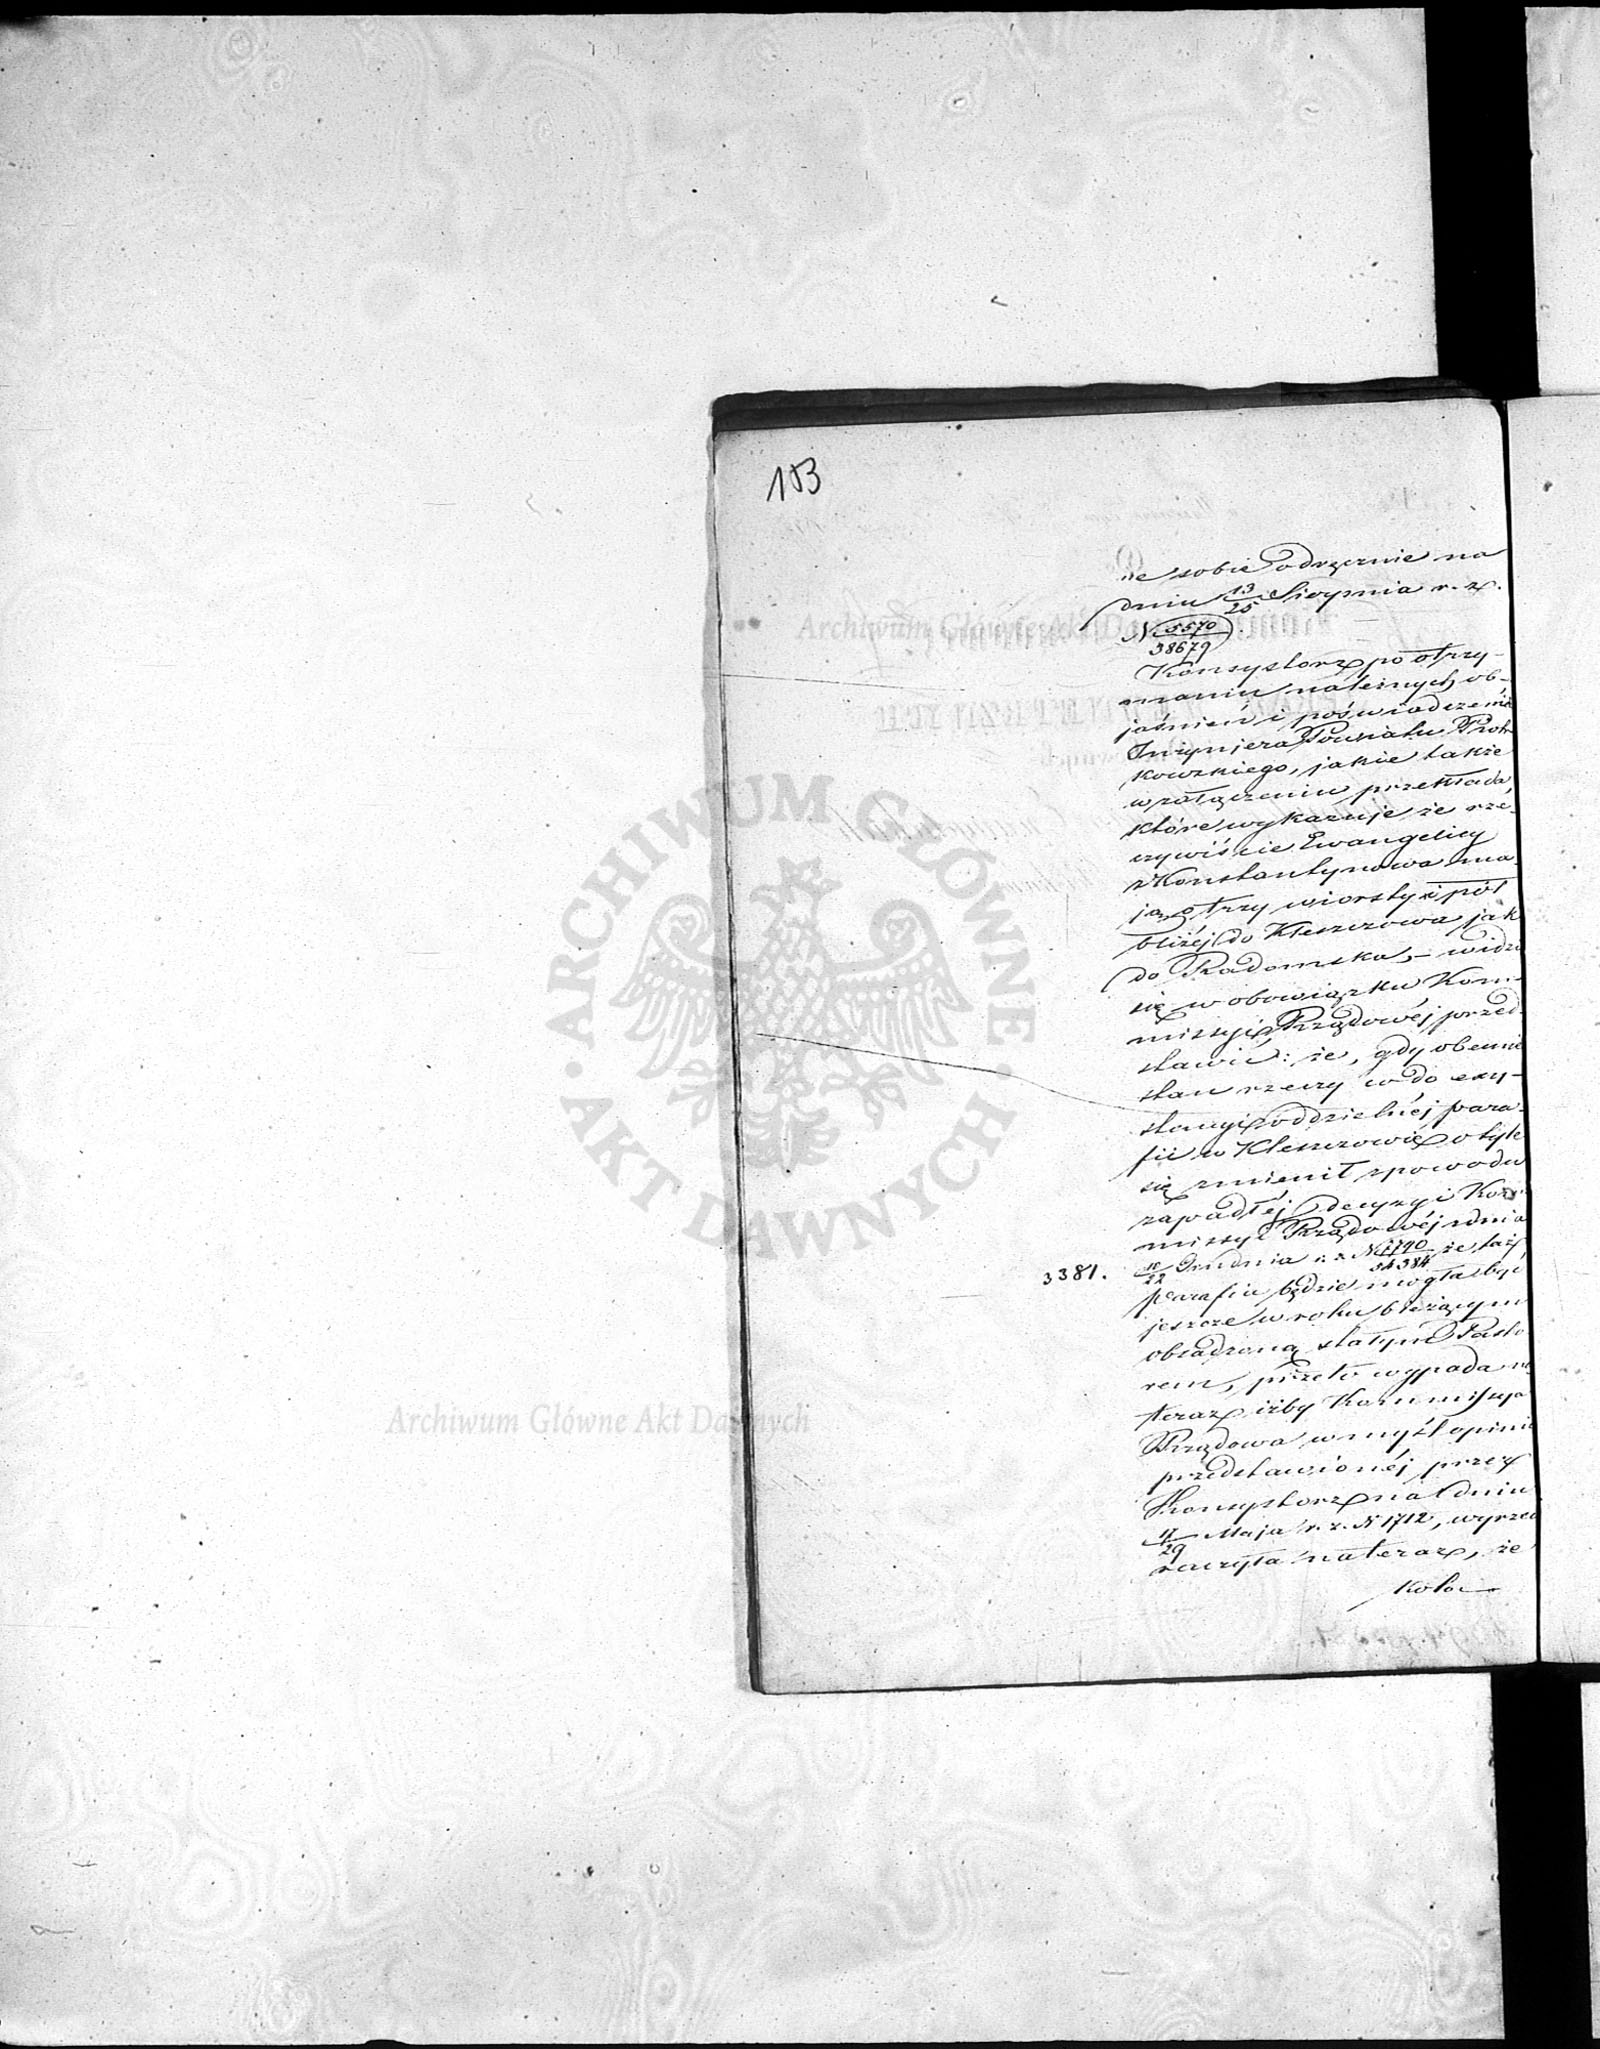 103
ne sobie odręcznie na
dniu 13/25 Sierpnia r. z.
N 5570/38679.
Konsystorz po otrzy-
maniu należnych ob-
jaśnień i poświadczenia
Inżyniera Powiatu Piotr
kowskiego, jakie także
w załączeniu przekłada
które wykazuje że rze-
czywiście Ewangelicy
z Konstantynowa ma-
ją trzy wiorsty i pół
bliżéj do Kleszczowa jak
do Radomska, – widzi
się w obowiązku Kom-
missyi Rządowéj przed-
stawić: że, gdy obecnie
stan rzeczy co do exy-
stencyi oddzielnéj para-
fii w Kleszczowie o tyle
się zmienił z powodu
zapadłéj decyzyi Kom-
missyi Rządowéj z dnia
3381.
10/22 Grudnia r. z. N 1740/54384 że taż
parafia będzie mogła być
jeszcze w roku bieżącym
obsadzoną stałym Pasto
rem, przeto wypada
teraz iżby Kommissya
Rządowa w myśl opinii
przedstawionéj przez
Konsystorz na dniu
17/29 Maja r. z. N 1712, wyrzec
raczyła na teraz, że
Kolo-
Archiwum Główne Akt Dawnych
ARCHIWUM GŁÓWNE · AKT DAWNYCH ·
Archiwum Główne Akt Dawnych